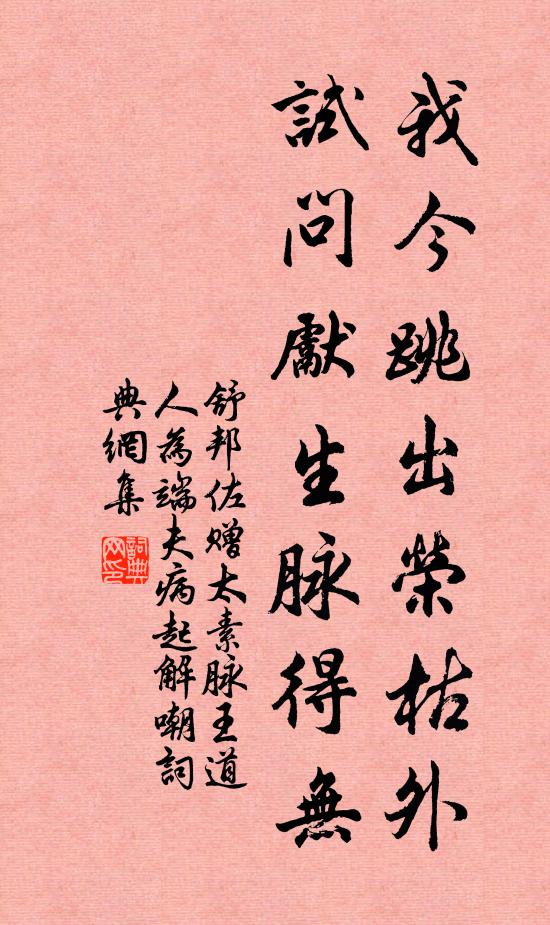 我今跳出榮枯外
試問獻生脉得無
舒邦佐赠太素脉王道
人為端夫病起解嘲詞
典網集
詞典
网印